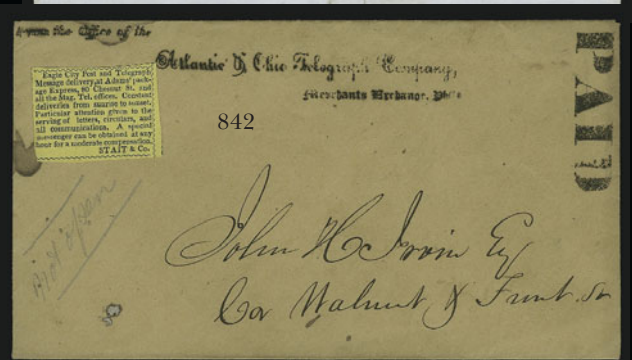 From the Office of the
Atlantic & Ohio Telegraph Company,
Merchants Exchange, Phila
PAID
Eagle City Post and Telegraph
Message delivery, at Adams' pack-
age Express, 80 Chesnut St. and
all the Mag. Tel. offices. Constant
deliveries from sunrise to sunset.
Particular attention given to the
serving of letters, circulars, and
all communications. A special
messenger can be obtained at any
hour for a moderate compensation.
STAIT & Co.
842
John H Irvin Esq
Cor Walnut & Front